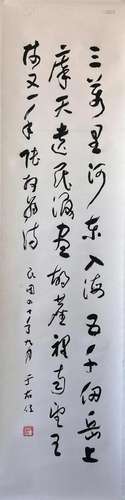 三萬里河東入海五千仞岳上
摩天遺民淚盡胡塵裡南望王
師又一年陸放翁詩
民國四十年九月 于右任